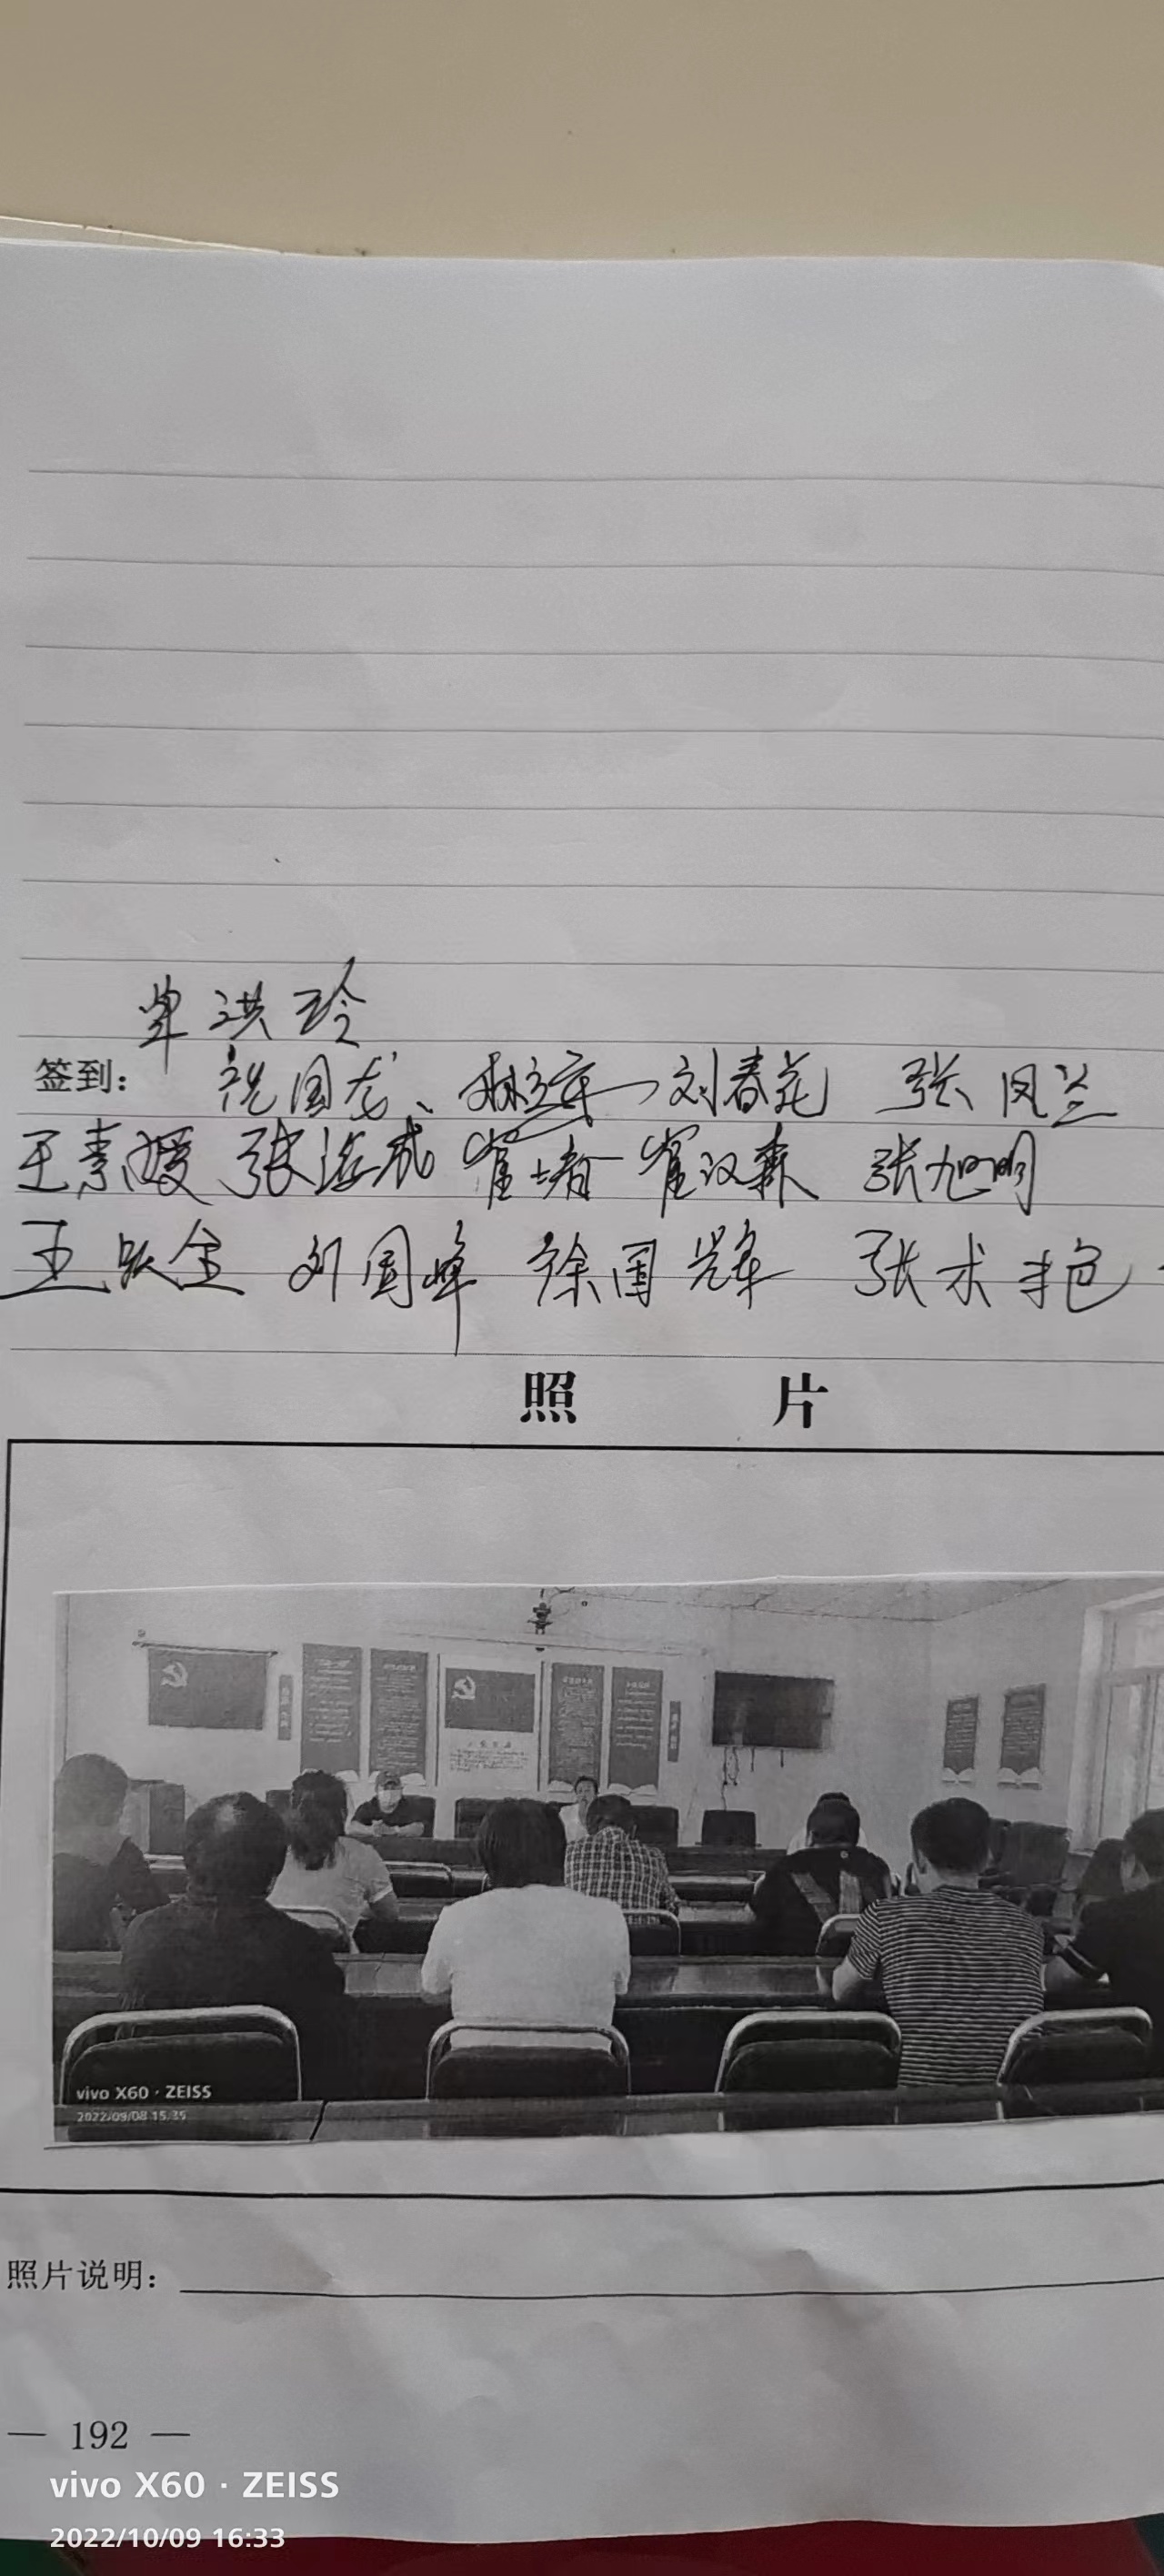 单洪玲
签到： 祝国龙、 刘春苑 张凤兰
王素媛 张海成 崔堵 崔汉森 张旭明
王跃金 刘国峰 徐国辉 张术艳
照 片
vivo X60 · ZEISS
2022/09/08 15:35
照片说明：
— 192 —
vivo X60 · ZEISS
2022/10/09 16:33